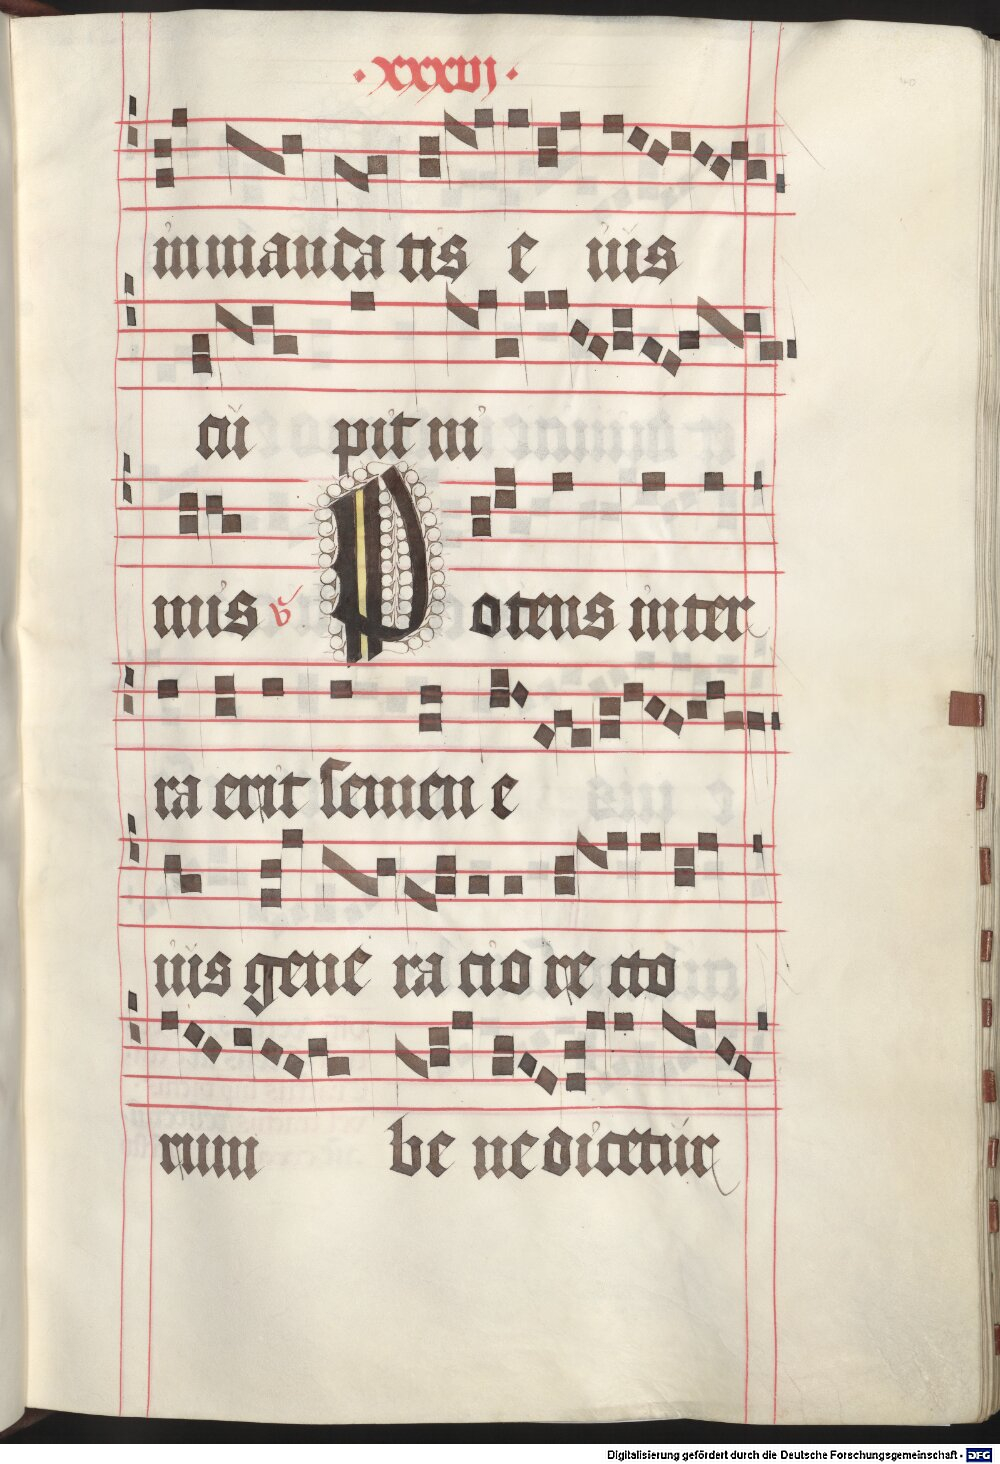 ·xxxvij·
inmandatis e ius
cu pit ni
mis v̄ Potens inter
ra erit semen e
ius gene ra cio re cto
rum be nedicetur
Digitalisierung gefördert durch die Deutsche Forschungsgemeinschaft - DFG